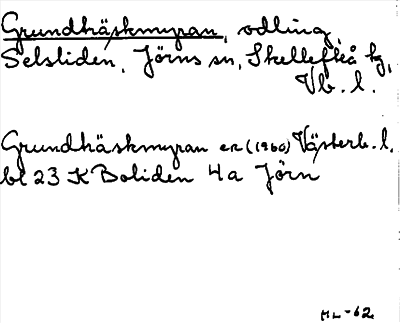 Grundhäskmyran, odling,
Selsliden, Jörns sn, Skellefteå tg,
Vb. l.
Grundhäskmyran ek (1960) Västerb. l.
bl 23 K Boliden 4a Jörn
ML-62